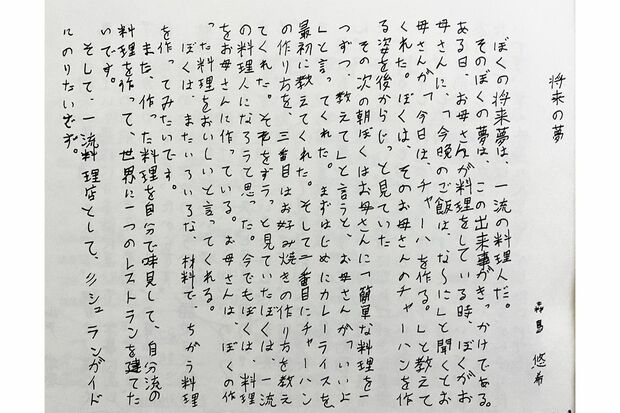 将来の夢
森島 悠希
ぼくの将来夢は、一流の料理人だ。
そのぼくの夢は、この出来事がきっかけである。
ある日、お母さんが料理をしている時、ぼくがお
母さんに、「今晩のご飯は、な〜に」と聞くとお
母さんが「今日は、チャーハを作る。」と教えて
くれた。ぼくは、そのお母さんのチャーハンを作
る姿を後からじっと見ていた
その次の朝ぼくはお母さんに「簡単な料理を一
つずつ、教えて」と言うと、お母さんが「いいよ
」と言ってくれた。まずはじめにカレーライスを
最初に教えてくれた。そして二番目にチャーハン
の作り方を、三番目はお好み焼きの作り方を教え
てくれた。それをずうっと見ていたぼくは、一流
の料理人になろうと思った。今でもぼくは、料理
をお母さんに作っている。お母さんは、ぼくの作
った料理をおいしいと言ってくれる。
ぼくは、またいろいろな、材料で、ちがう料理
を作ってみたいです。
また、作った料理を自分で味見して、自分流の
料理を作って、世界に一つのレストランを建てた
いです。
そして、一流料理店として、ミシュランガイド
にのりたいです。